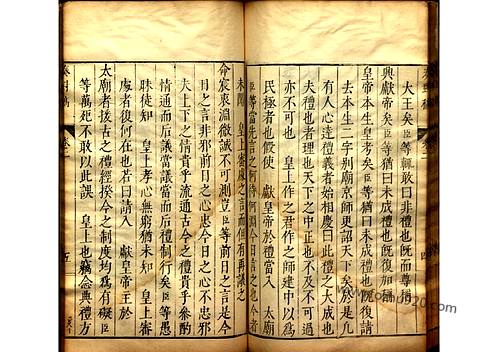 大王矣臣等輙敢曰非禮也既而尊
興獻帝矣臣等猶曰未成禮也既復加稱
皇帝本生皇考矣臣等猶曰未成禮也既復請
去本生二字別廟京師更詔天下矣於是凡
有人心達禮義者始相慶曰此禮之大成也
夫禮也者理也天下之中正也不及不可過
亦不可也 皇上作之君作之師建中以為
民極者也假使 獻皇帝於禮當入 太廟
臣等當先言之何待何淵今日言之也今者
未聞 皇上審處之言而但有再議之
命宸衷淵微誠不可測豈臣等前日之言是今
日之言非邪前日之心忠今日之心不忠邪
夫上下之情貴乎流通古今之禮貴乎參酌
情通而后議當議當而后禮制行矣臣等愚
昧徒知 皇上孝心無窮猶未知 皇上審
處者復何在也若曰請入 獻皇帝主於
太廟者援古之禮經揆今之制度均為有礙臣
等萬死不敢以此誤 皇上也竊念典禮方